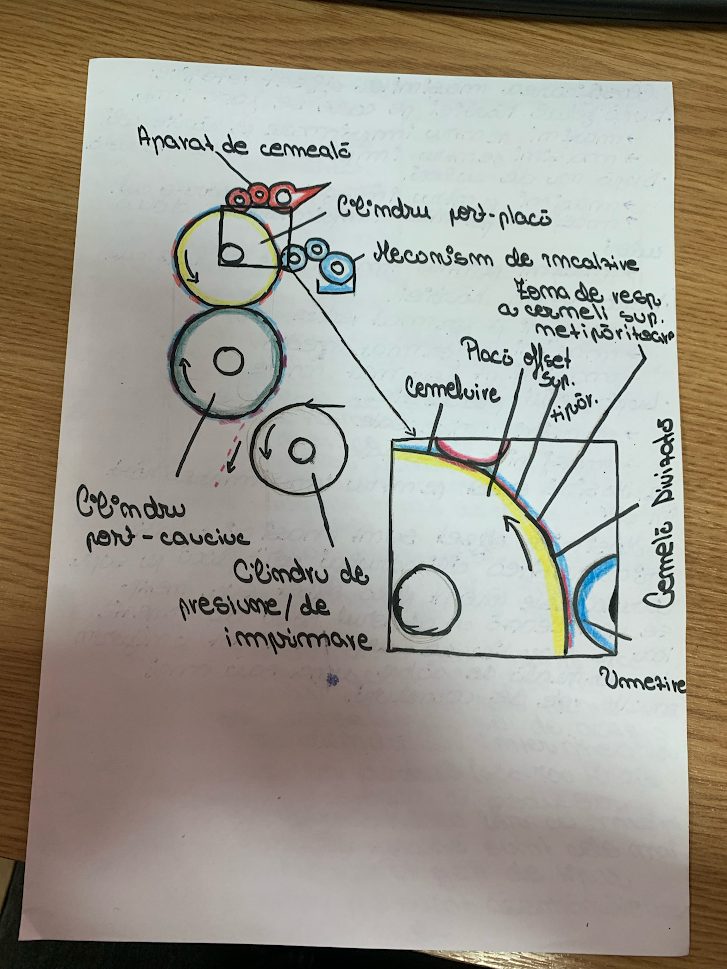 Aparat de cerneală
Cilindru port-placă
Mecanism de incalzire
Zona de resp.
a cerneli sup.
netipăritoare
Placă offset
sup.
tipăr.
Cerneluire
Cerneală Divizată
Cilindru
port-cauciuc
Cilindru de
presiune/de
imprimare
Umezire